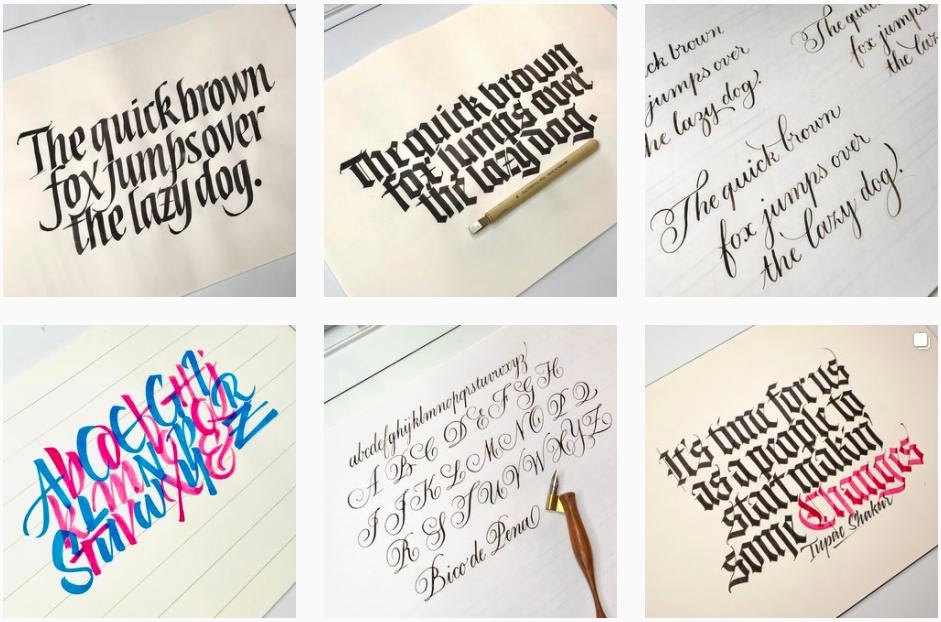 The quick brown
fox jumps over
the lazy dog.
The quick brown
fox jumps over
the lazy dog.
ck brown
jumps over
he lazy dog.
The quic
fox jumps
the laz
The quick brown
fox jumps over
the lazy dog.
abcdefghijklmnopqrstuvwxyz
A B C D E F G H
I J K L M N O P Q
R S T U V W X Y Z
Bico de Pena
It's time for us
as a people to
start makin'
some Changes
Tupac Shakur